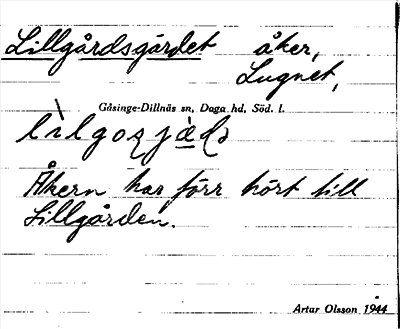 Lillgårdsgärdet åker,
Lugnet,
Gåsinge-Dillnäs sn, Daga hd, Söd. l.
Åkern har förr hört till
Lillgården.
Artur Olsson 1944